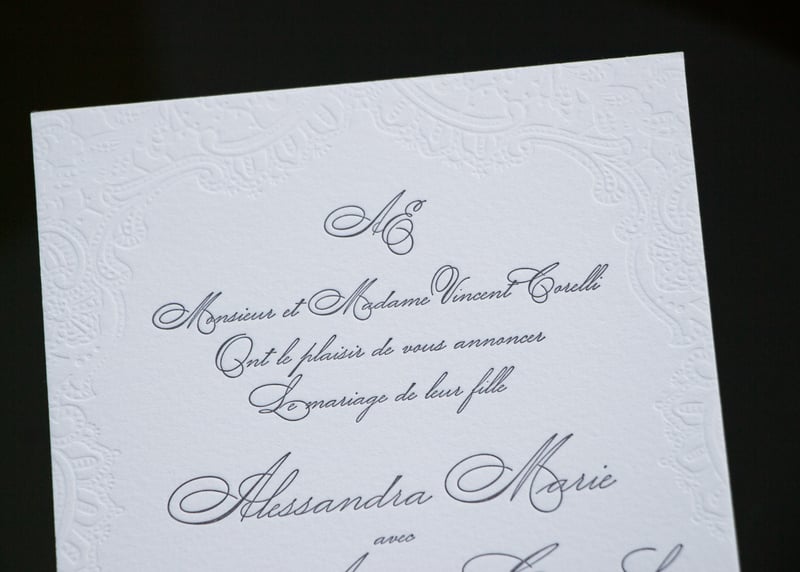 AE
Monsieur et Madame Vincent Corelli
Ont le plaisir de vous annoncer
Le mariage de leur fille
Alessandra Marie
avec